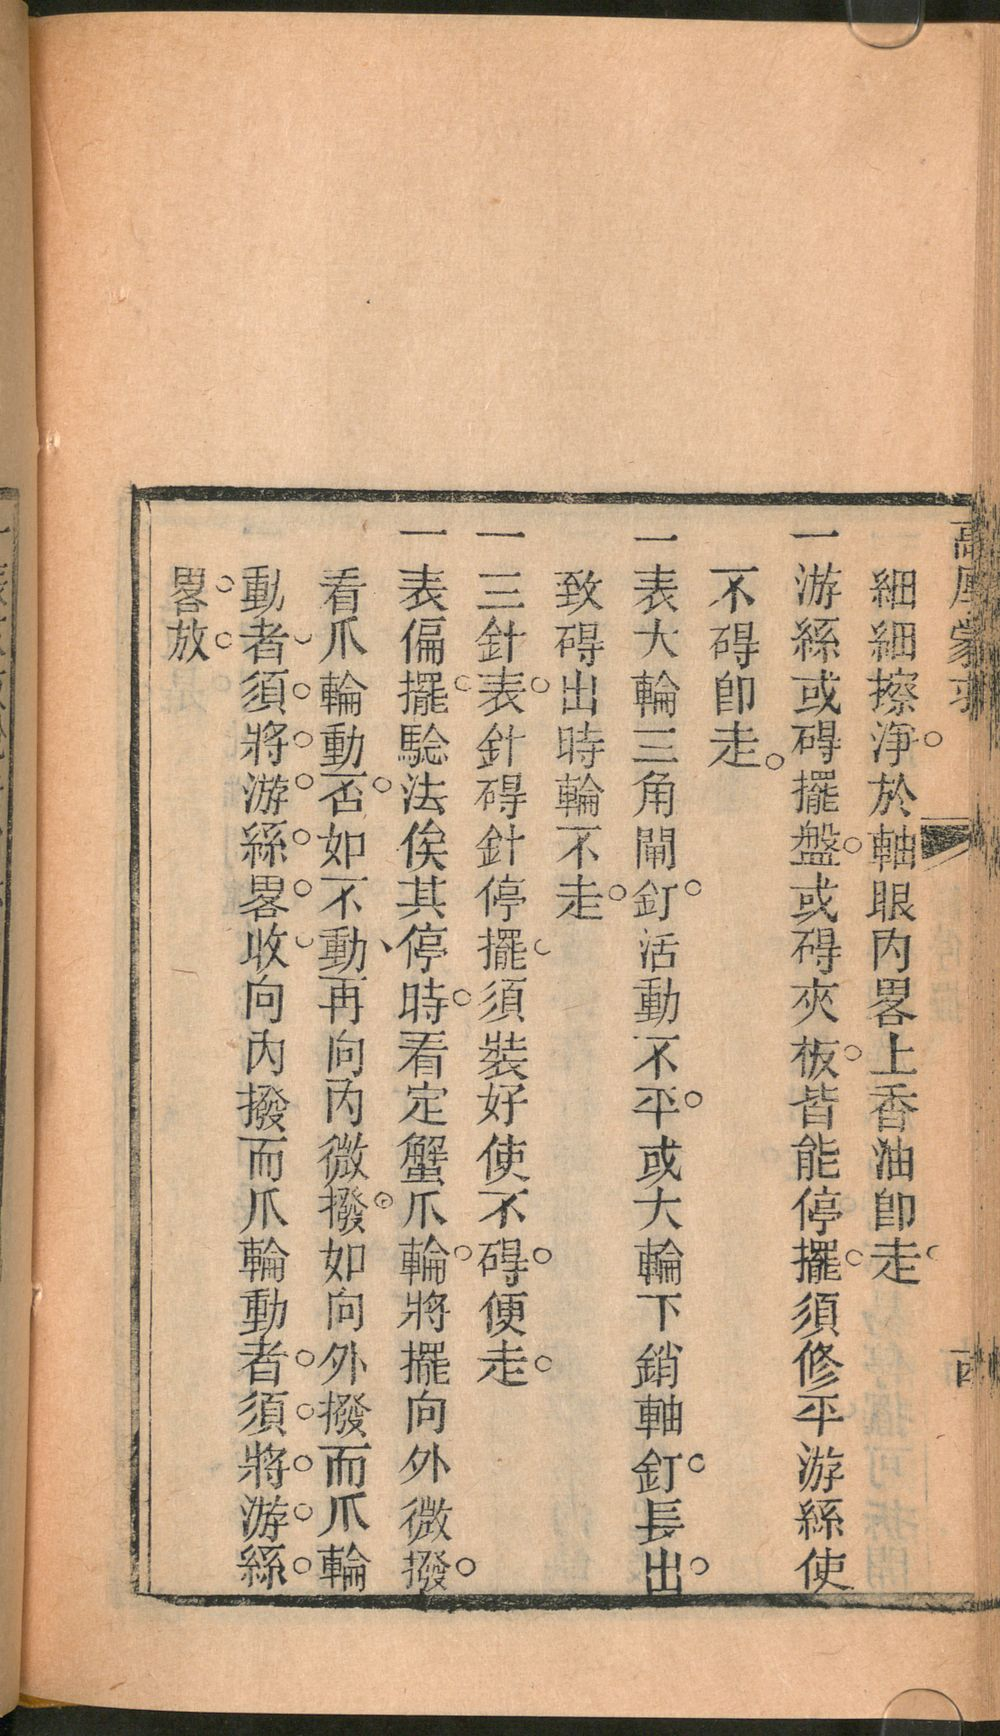 細細擦淨。於軸眼内畧上香油卽走。
一游絲或碍擺盤。或碍夾板。皆能停擺。須修平游絲使
不碍卽走。
一表大輪三角閘釘。活動不平。或大輪下銷軸釘。長出。
致碍出時輪不走。
一三針表。針碍針停擺。須裝好使不碍。便走。
一表偏擺。騐法俟其停時。看定蟹爪輪。將擺向外微撥。
看爪輪動否。如不動、再向内微撥。如向外撥而爪輪
動者須。將。游。絲。畧。收向内撥而爪輪動者。須。將。游。絲。
畧。放。